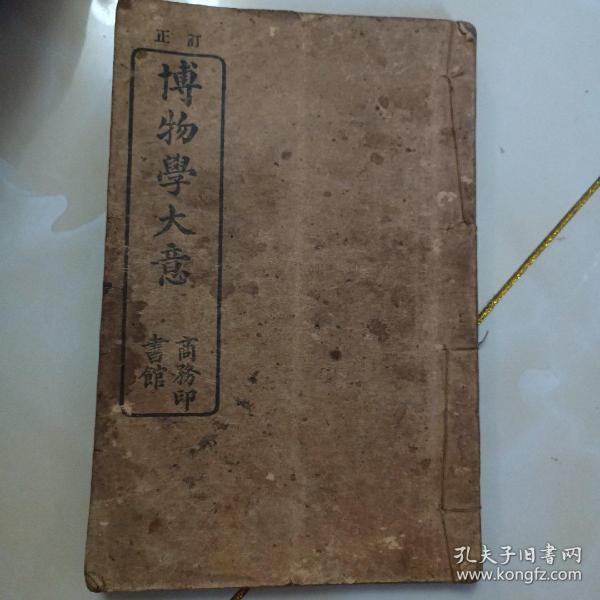 訂正
博物學大意
商務印
書館
孔夫子旧书网
www.kongfz.com